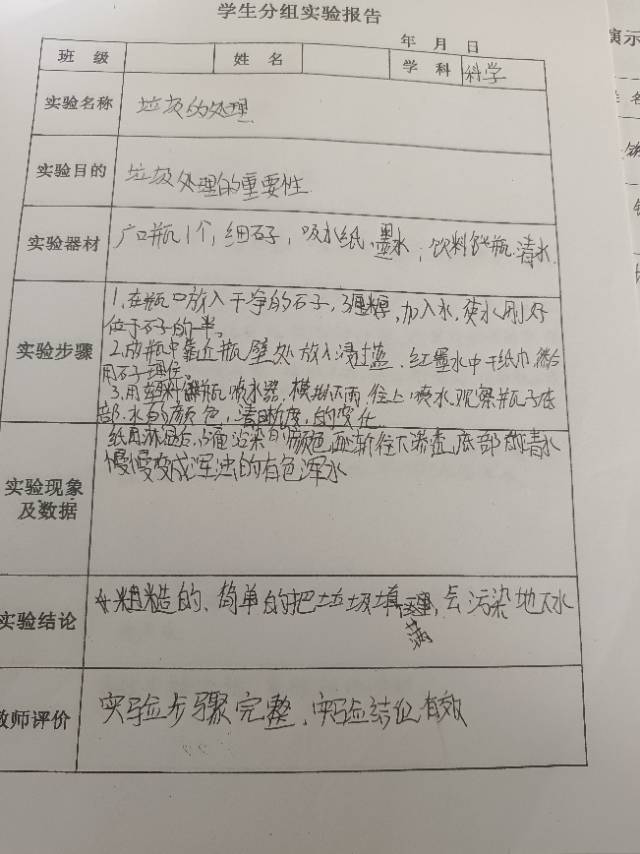 学生分组实验报告
年 月 日
班级 姓名 学科 科学
实验名称 垃圾的处理
实验目的 垃圾处理的重要性
实验器材 广口瓶1个,细石子,吸水纸、墨水,饮料瓶.清水.
实验步骤
1.在瓶中放入干净的石子,厚,加入水,使水刚好
位于石子的一半。
2.瓶中靠近瓶壁处放入浸过蓝、红墨水中干纸巾
用石子埋住。
3.用喷水器,模拟下雨往上喷水,观察瓶子底
部水的颜色,清晰度,的变化
实验现象及数据
纸淋湿后,污染的颜色逐渐往下渗透,底部的清水
慢慢变成浑浊的有色浑水
实验结论 粗糙的、简单的把垃圾填埋,会污染地下水
教师评价 实验步骤完整、实验结论有效
演示